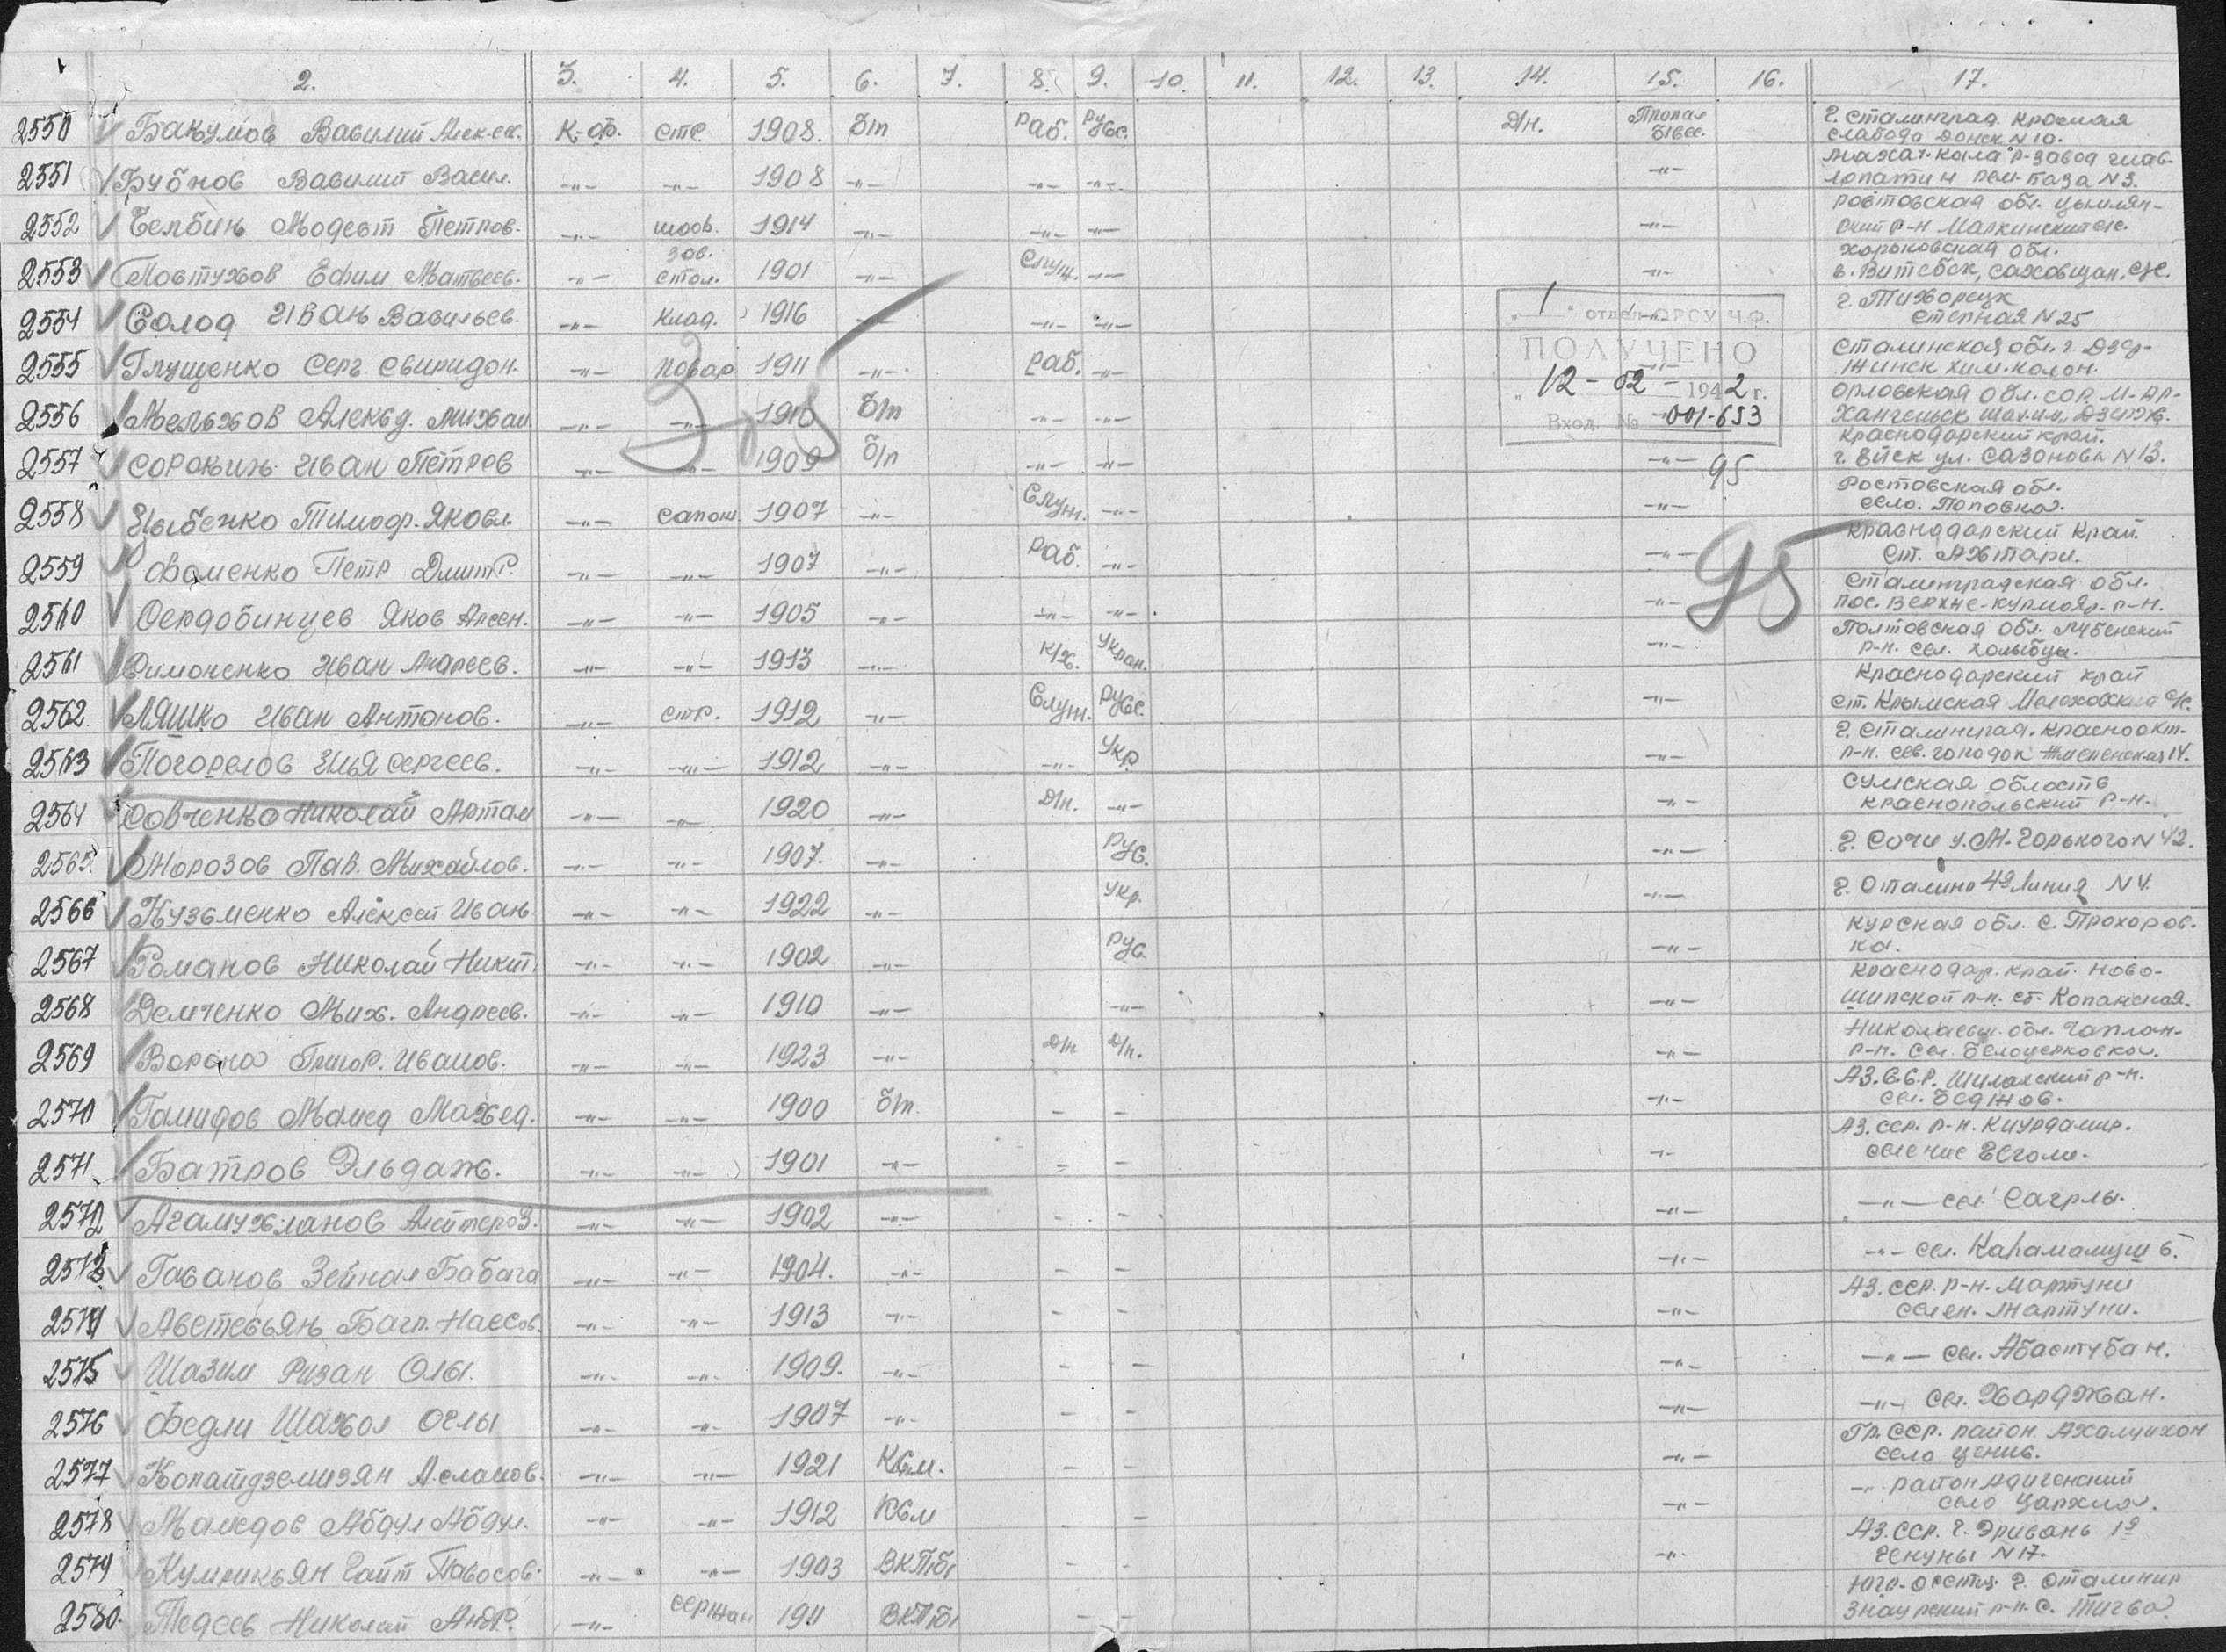 2. 3. 4. 5. 6. 7. 8. 9. 10. 11. 12. 13. 14. 15. 16. 17.
2550 Бакумов Василий Алексе. К-ф. стр. 1908. б/п Раб. Рус. Д/н. Пропал б/вес. г. Сталинград Красная слабода Донск N 10.
2551 Бубнов Василий Васил. -"- -"- 1908 -"- -"- -"- -"- Махач-кала Р-завод глав-
2552 Модест Петров. -"- 1914 -"- -"- -"- -"- Ростовская обл. Цымлян-ский р-н
2553 Ефим Матвеев. -"- зав. стол. 1901 -"- Служ. -"- -"- Харьковская обл. г. Витебск,
2554 Солод Иван Васильев. -"- клад. 1916 -"- -"- -"- г. Тихорецк степная N 25
2555 Глущенко Серг. Свиридон. -"- повар 1911 -"- Раб. -"- Сталинская обл. г. Дзер-жинск хим. колон.
2556 Мельхов Алекд. Михаил -"- -"- 1910 б/п -"- -"- Орловская обл.
2557 Сорокин Иван Петров -"- -"- 1909 б/п -"- -"- -"- Краснодарский край. г. Ейск ул. Сазонова N 13.
2558 Цыбенко Тимоф. Яковл. -"- сапож. 1907 -"- Служ. -"- -"- Ростовская обл. село. Поповка.
2559 Фоменко Петр Дмитр. -"- -"- 1907 -"- Раб. -"- -"- Краснодарский край. ст. Ахтари.
2560 Сердобинцев Яков Арсен. -"- -"- 1905 -"- -"- -"- -"- Сталинградская обл. пос. Верхне-Курмояр. р-н.
2561 Симоненко Иван Андреев. -"- -"- 1913 -"- К/х. Украи. -"- Полтовская обл. Лубенский р-н. сел.
2562. Ляшко Иван Антонов. -"- стр. 1912 -"- Служ. Русс. -"- Краснодарский край ст. Крымская
2563 Погорелов Илья Сергеев. -"- -"- 1912 -"- -"- Укр. -"- г. Сталинград. Краснооктя. р-н. сев. городок
2564 Совченко Николай Артам -"- -"- 1920 -"- Д/н. -"- -"- Сумская область Краснопольский р-н.
2565. Морозов Пав. Михайлов. -"- -"- 1907. -"- Рус. -"- г. Сочи у. М. Горького N 42.
2566 Кузьменко Алексей Иван -"- -"- 1922 -"- Укр. -"- г. Сталино 4я Линия N 4.
2567 Романов Николай Никит. -"- -"- 1902 -"- Рус. -"- Курская обл. с. Прохоров-ка.
2568 Демченко Мих. Андреев. -"- -"- 1910 -"- -"- -"- Краснодар. край. Ново-щипской р-н. ст. Копанская.
2569 Ворона Григор. Иванов. -"- -"- 1923 -"- Д/н Д/н. -"- Николаевск. обл. Чаплин. р-н. сел. Белоцерковка.
2570 Гамидов Мамед Махед. -"- -"- 1900 б/п. - - -"- Аз. С.С.Р. р-н. сел.
2571. Батров Эльдаж. -"- -"- 1901 -"- - - -"- Аз. ССР. р-н. Кюрдамир. селение
2572 -"- -"- 1902 -"- - - -"- -"- сел. Сагрлы.
2573 Гасанов Зейнал Бабага -"- -"- 1904. -"- - - -"- -"- сел.
2574 Аветевьян Багр. Насесов. -"- -"- 1913 -"- - - -"- Аз. ССР. р-н. Мартуни селен. Мартуни.
2575 Шазим Ризан Оглы. -"- -"- 1909. -"- - - -"- -"- сел. Абастубан.
2576 Федли Шахол Оглы -"- -"- 1907 -"- - - -"- -"- сел. Харджан.
2577 Асланов. -"- -"- 1921 КСм. - - -"- Гр. ССР. район. Ахалцихон село Цнив.
2578 Мамедов Абдул Абдул. -"- -"- 1912 КСм - - -"- -"- район Адигенский село Цархла.
2579 Павосов. -"- -"- 1903 ВКП/б/ - - -"- Аз. ССР. г. Эривань N 17.
2580. Тедеев Николай Андр. -"- сержан 1911 ВКП/б/ - - Юго-Осетия г. Сталинир Знаурский р-н с. Тигва.
305
" 1 " отдел ОРСУ Ч.Ф.
ПОЛУЧЕНО
" 12 - 02 - 1942 г.
Вход. № 001-653
95
95